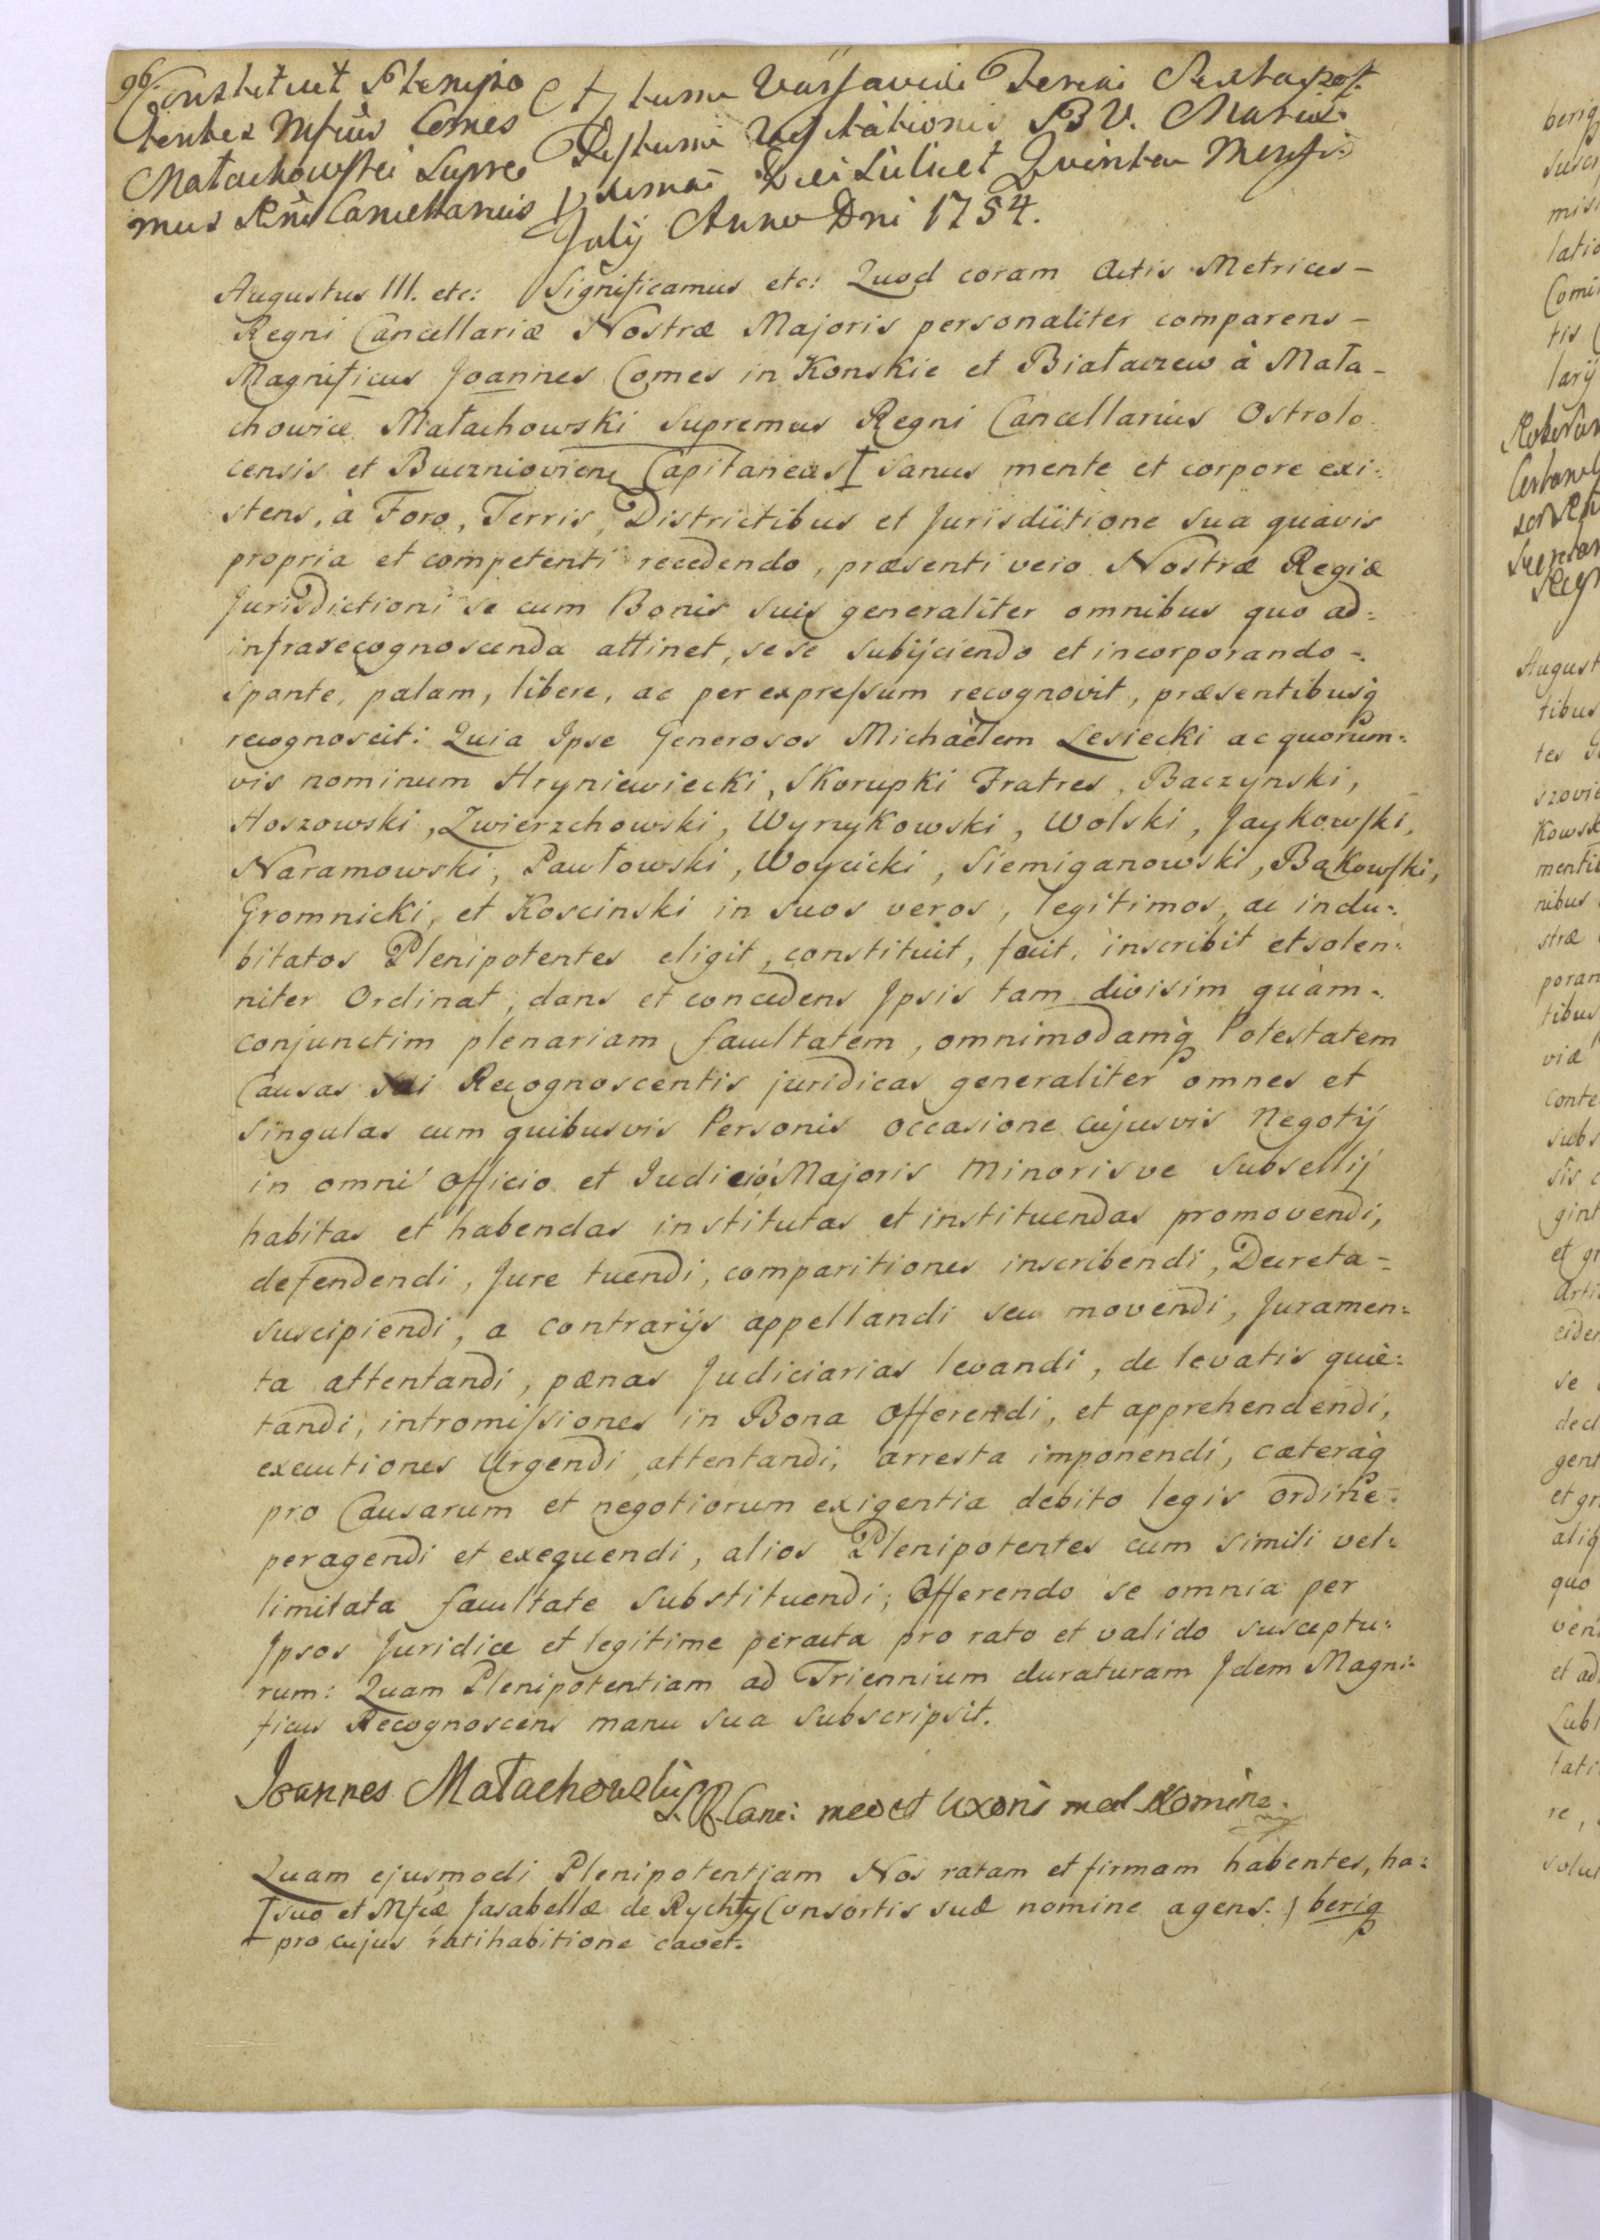 96.
Constituit Plenipo
tentes Mfcus Comes
Małachowski Supre
mus Rni Cancellarius
Actum Varsaviæ Feria Sexta post
Festum Visitationis B V. Mariæ
proxima Die scilicet Quinta Mensis
July Anno Dni 1754.
Augustus III. etc: Significamus etc: Quod coram Actis Metrices-
Regni Cancellariæ Nostræ Majoris personaliter comparens-
Magnificus Joannes Comes in Konskie et Białaczew à Mała-
chowice Małachowski Supremus Regni Cancellarius Ostrolo
censis et Capitaneus I sanus mente et corpore exi:
stens, à Foro, Terris, Districtibus et Jurisdictione sua quavis
propria et competenti recedendo, præsenti vero Nostræ Regiæ
Jurisdictioni se cum Bonis suis generaliter omnibus quo ad:
infrarecognoscenda attinet, sese subijciendo et incorporando-
spante, palam, libere, ac per expressum recognovit, præsentibusq
recognoscit: Quia Ipse Generosos Michaëlem Lesiecki ac quorum-
vis nominum Hryniewiecki, Skorupki Fratres, Baczynski,
Hoszowski, Zwierzchowski, Wyrzykowski, Wolski, Jaykowski,
Naramowski, Pawłowski, Woycicki, Siemiganowski, Bąkowski,
Gromnicki, et Koscinski in suos veros, legitimos, ac indu-
bitatos Plenipotentes eligit, constituit, facit, inscribit et solen:
niter Ordinat, dans et concedens Ipsis tam divisim quàm-
conjunctim plenariam facultatem, omnimodamq Potestatem
Causas sui Recognoscentis juridicas generaliter omnes et
singulas cum quibusvis Personis occasione cujusvis negotij
in omni Officio et Judicio Majoris Minorisve Subsellij
habitas et habendas institutas et instituendas promovendi,
defendendi, Jure tuendi, comparitiones inscribendi, Decreta-
suscipiendi, a contrarijs appellandi seu movendi, Juramen:
ta attentandi, pænas Judiciarias levandi, de levatis quie:
tandi, intromissiones in Bona Offerendi, et apprehendendi,
executiones Urgendi attentandi, arresta imponendi, cæteraq
pro Causarum et negotiorum exigentia debito legis ordine-
peragendi et exequendi, alios Plenipotentes cum simili vel-
limitata facultate substituendi; Offerendo se omnia per
Ipsos Juridice et legitime peracta pro rato et valido susceptu:
rum: Quam Plenipotentiam ad Triennium duraturam Idem Magni:
ficus Recognoscens manu sua subscripsit.
Joannes Małachowski S. R. Canc: meo et Uxoris meæ Nomine.
Quam ejusmodi Plenipotentiam Nos ratam et firmam habentes, ha:
I suo et Mfcæ Jasabellæ de Rychty Consortis suæ nomine agens.) beriq
pro cujus ratihabitione cavet.